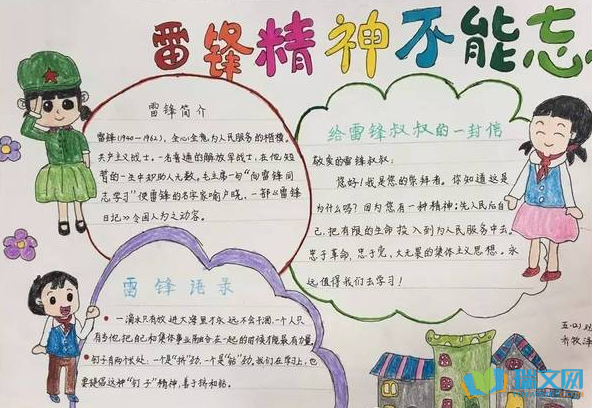 雷锋精神不能忘
雷锋简介
雷锋(1940-1962),全心全意为人民服务的楷模,
共产主义战士。一名普通的解放军战士,在他短
暂的一生中却助人无数。毛主席一句“向雷锋同
志学习”使雷锋的名字家喻户晓,一部《雷锋
日记》令国人为之动容。
给雷锋叔叔的一封信
敬爱的雷锋叔叔:
您好!我是您的崇拜者。你知道这是
为什么吗?因为您有一种精神:先人民后自
己,把有限的生命投入到为人民服务中去。
忠于革命,忠于党,大无畏的集体主义思想。永
远值得我们去学习!
雷锋语录
一滴水只有放进大海里才永远不会干涸,一个人只
有当他把自己和集体事业融合在一起的时候才能最有力量。
钉子有两个长处:一个是“挤”劲,一个是“钻”劲,我们在学习上,也
要提倡这种“钉子”精神,善于挤和钻。
五.(2)班
瑞文网